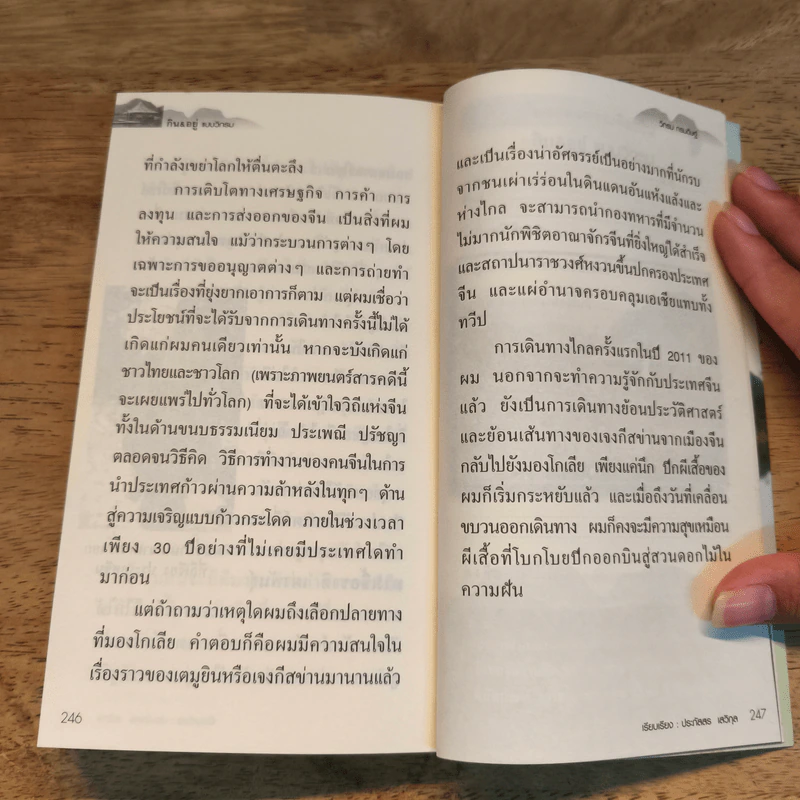 กินอยู่ แบบวิกรม
ที่กำลังเขย่าโลกให้ตื่นตะลึง
การเติบโตทางเศรษฐกิจ การค้า การ
ลงทุน และการส่งออกของจีน เป็นสิ่งที่ผม
ให้ความสนใจ แม้ว่ากระบวนการต่างๆ โดย
เฉพาะการขออนุญาตต่างๆ และการถ่ายทำ
จะเป็นเรื่องที่ยุ่งยากเอาการก็ตาม แต่ผมเชื่อว่า
ประโยชน์ที่จะได้รับจากการเดินทางครั้งนี้ไม่ได้
เกิดแก่ผมคนเดียวเท่านั้น หากจะบังเกิดแก่
ชาวไทยและชาวโลก (เพราะภาพยนตร์สารคดีนี้
จะเผยแพร่ไปทั่วโลก) ที่จะได้เข้าใจวิถีแห่งจีน
ทั้งในด้านขนบธรรมเนียม ประเพณี ปรัชญา
ตลอดจนวิธีคิด วิธีการทำงานของคนจีนในการ
นำประเทศก้าวผ่านความล้าหลังในทุกๆ ด้าน
สู่ความเจริญแบบก้าวกระโดด ภายในช่วงเวลา
เพียง 30 ปีอย่างที่ไม่เคยมีประเทศใดทำ
มาก่อน
แต่ถ้าถามว่าเหตุใดผมถึงเลือกปลายทาง
ที่มองโกเลีย คำตอบก็คือผมมีความสนใจใน
เรื่องราวของเตมูยินหรือเจงกีสข่านมานานแล้ว
246
วิกรม กรมดิษฐ์
และเป็นเรื่องน่าอัศจรรย์เป็นอย่างมากที่นักรบ
จากชนเผ่าเร่ร่อนในดินแดนอันแห้งแล้งและ
ห่างไกล จะสามารถนำกองทหารที่มีจำนวน
ไม่มากนักพิชิตอาณาจักรจีนที่ยิ่งใหญ่ได้สำเร็จ
และสถาปนาราชวงศ์หงวนขึ้นปกครองประเทศ
จีน และแผ่อำนาจครอบคลุมเอเชียแทบทั้ง
ทวีป
การเดินทางไกลครั้งแรกในปี 2011 ของ
ผม นอกจากจะทำความรู้จักกับประเทศจีน
แล้ว ยังเป็นการเดินทางย้อนประวัติศาสตร์
และย้อนเส้นทางของเจงกีสข่านจากเมืองจีน
กลับไปยังมองโกเลีย เพียงแค่นึก ปีกผีเสื้อของ
ผมก็เริ่มกระหยับแล้ว และเมื่อถึงวันที่เคลื่อน
ขบวนออกเดินทาง ผมก็คงจะมีความสุขเหมือน
ผีเสื้อที่โบกโบยปีกออกบินสู่สวนดอกไม้ใน
ความฝัน
เรียบเรียง : ประภัสสร เสวิกุล 247